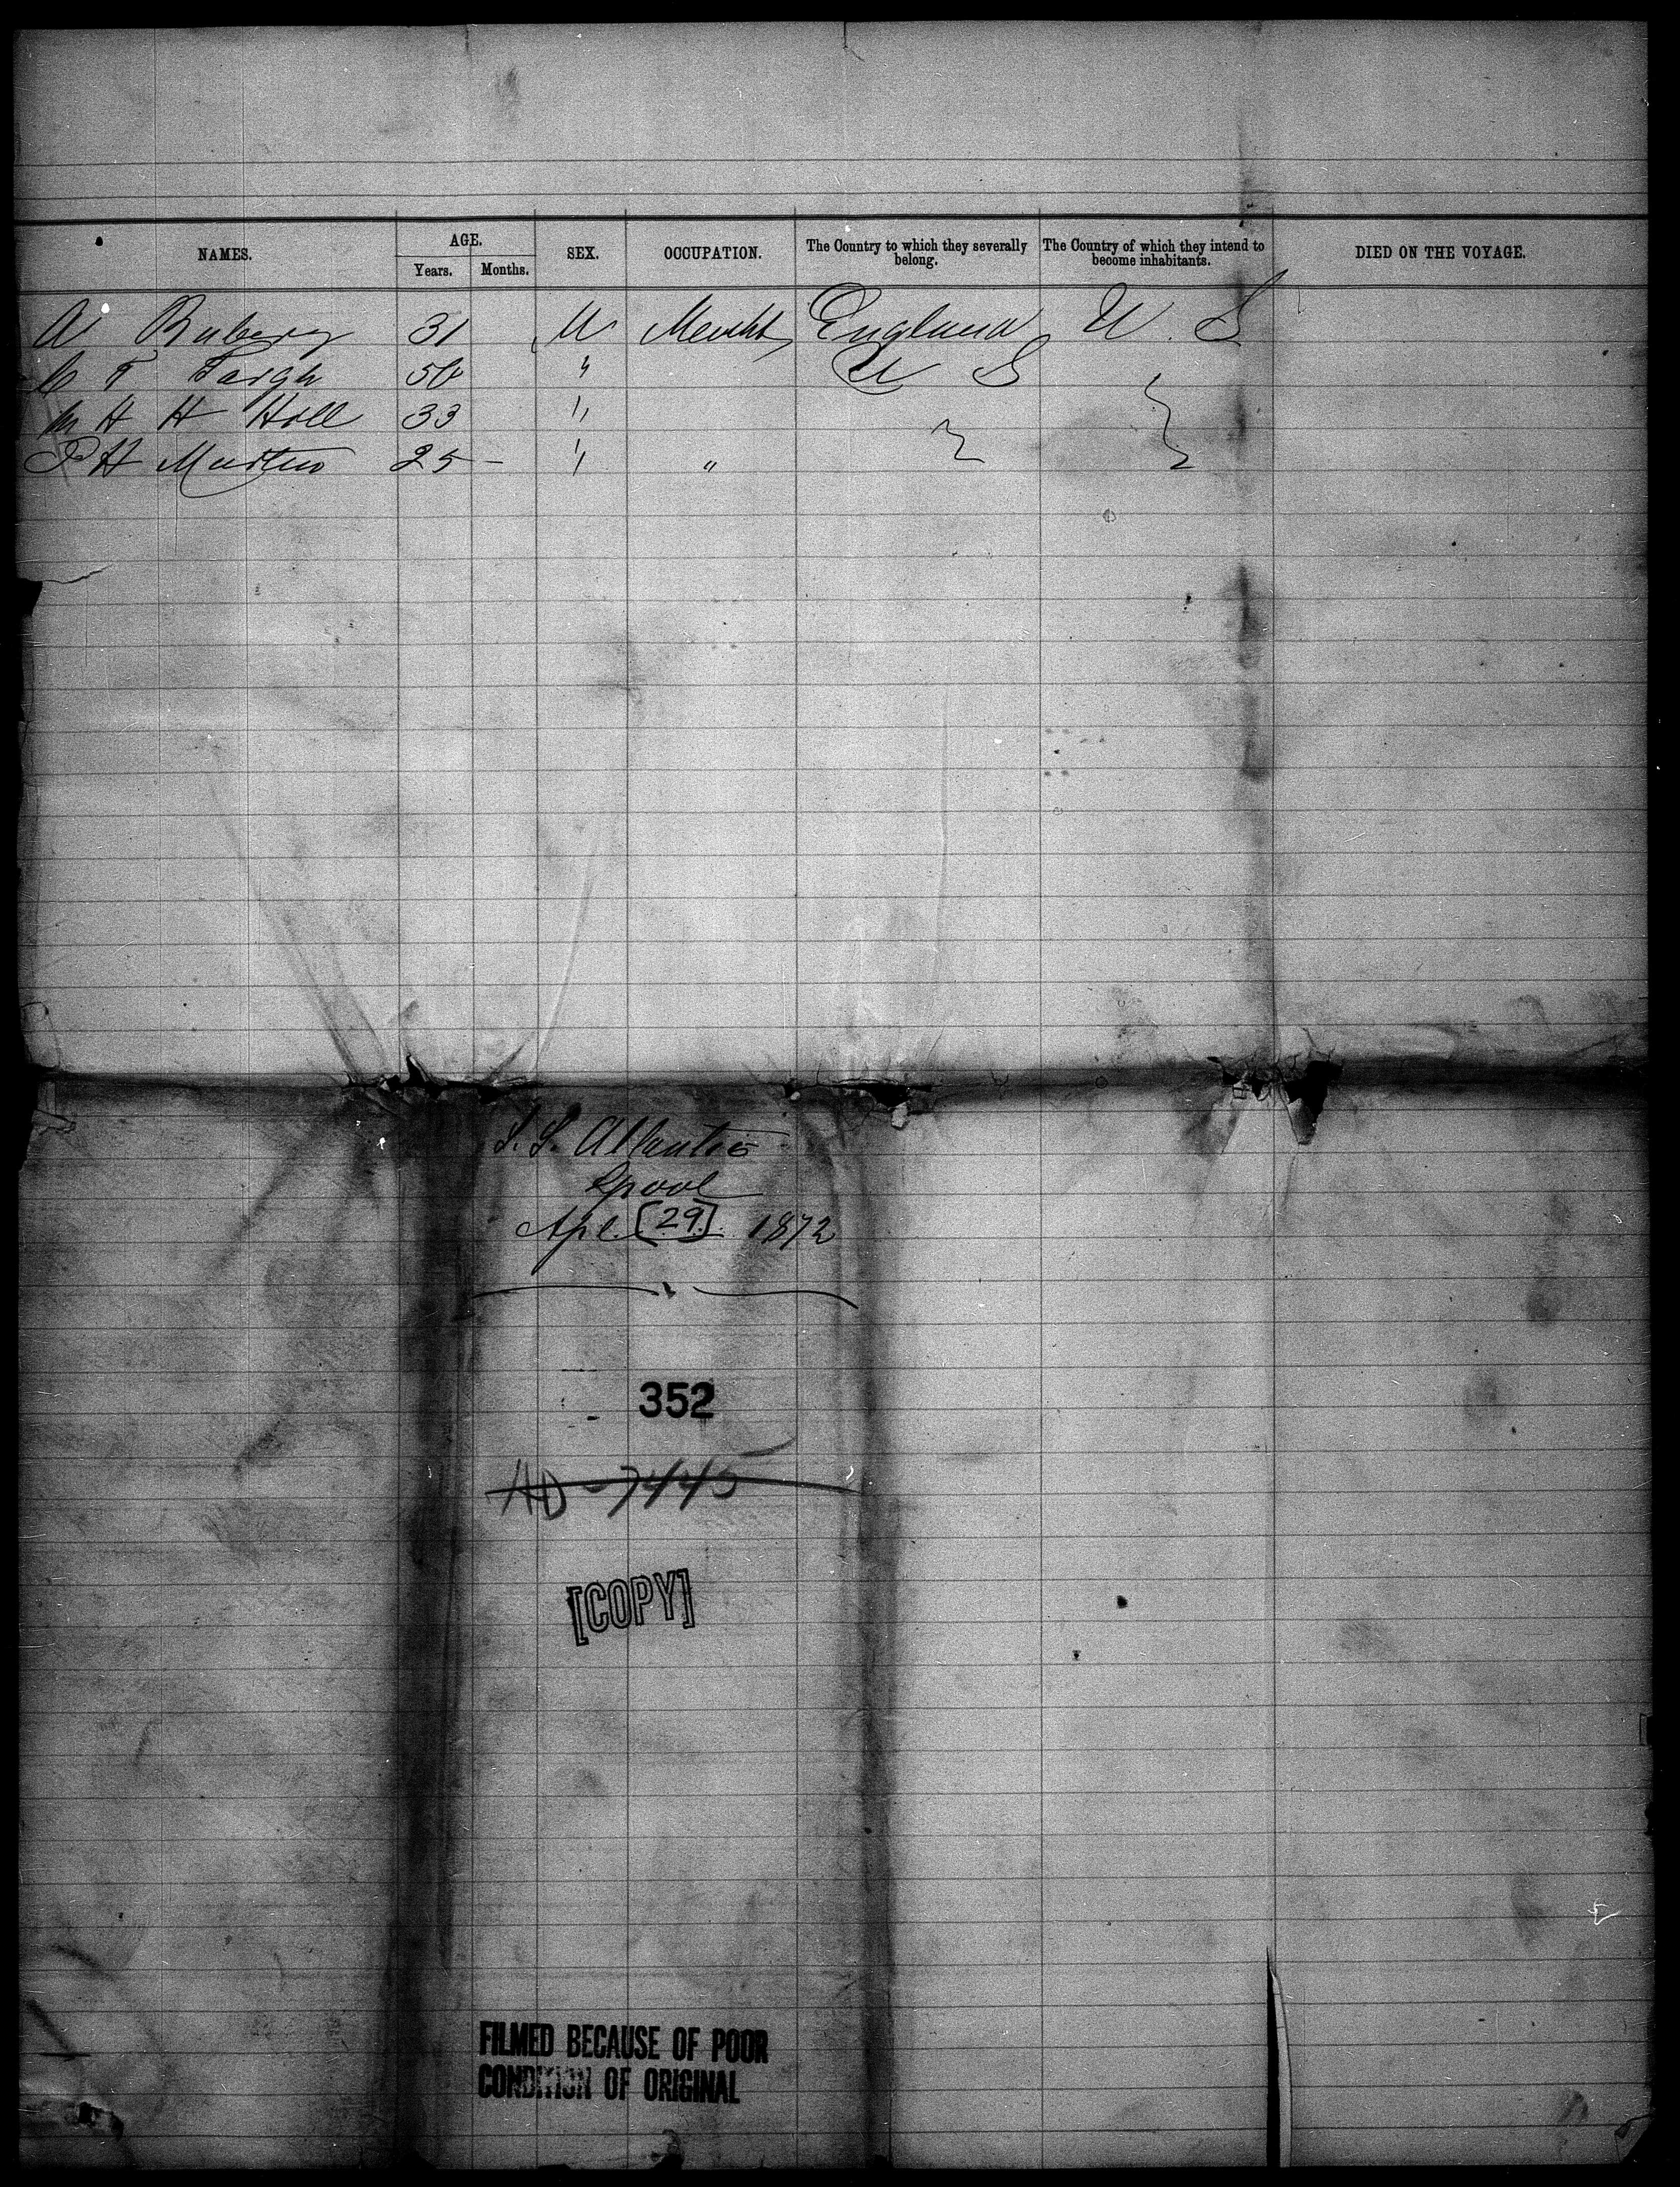 NAMES. AGE. SEX. OCCUPATION. The Country to which they severally belong. The Country of which they intend to become inhabitants. DIED ON THE VOYAGE.
Years. Months.
A Rubery 31 M Mercht England U. S
C T 50 " U S
H H Hill 33 "
P H Martin 25 - " "
S. S. Atlantic
Lpool
Apl. [29]. 1872
352
AD-7445
[COPY]
FILMED BECAUSE OF POOR
CONDITION OF ORIGINAL